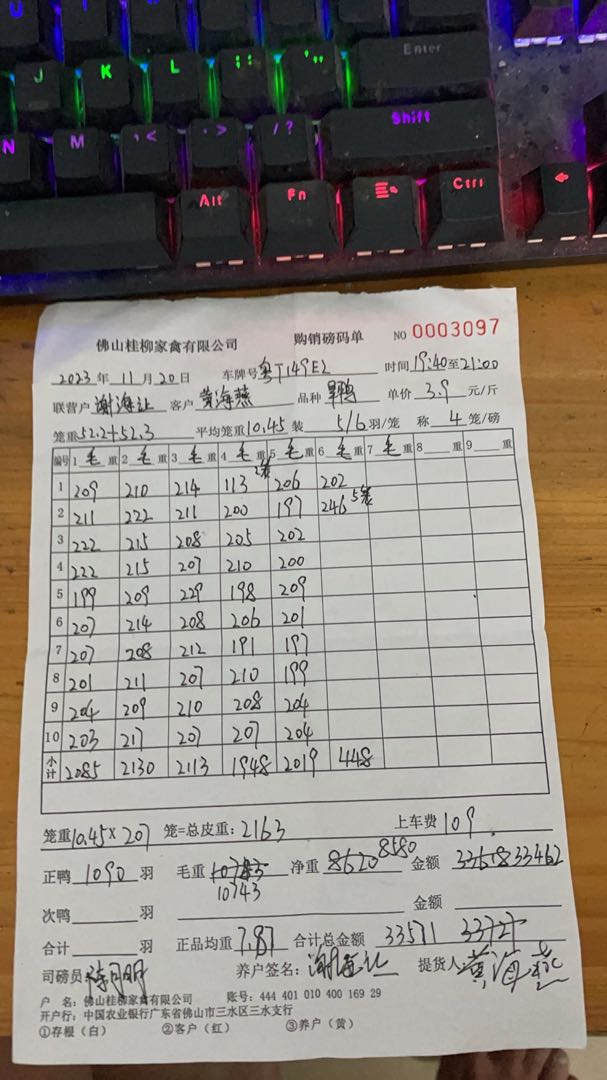 J K L ; : ' " Enter
N M , < . > / ? Shift
Alt Fn Ctrl
佛山桂柳家禽有限公司 购销磅码单 NO 0003097
2023年 11月20日 车牌号 粤T149E2 时间 19:40至21:00
联营户 谢海让 客户 黄海燕 品种 旱鸭 单价 3.9 元/斤
笼重52.2+52.3 平均笼重10.45 装 5/6 羽/笼 称 4 笼/磅
编号 1 毛 重 2 毛 重 3 毛 重 4 毛 重 5 毛 重 6 毛 重 7 毛 重 8 重 9 重
1 209 210 214 113 2笼 206 202
2 211 222 211 200 197 246 5笼
3 222 215 208 205 202
4 222 215 207 210 200
5 199 209 229 198 209
6 207 214 208 206 201
7 207 208 212 191 197
8 201 211 207 210 199
9 204 209 210 208 204
10 203 217 207 207 204
小计 2085 2130 2113 1948 2019 448
笼重10.45× 207 笼=总皮重: 2163 上车费 109.
正鸭 1090 羽 毛重 10743 净重 8620 8580 金额 33618 33462
次鸭 羽 金额
合计 羽 正品均重 7.87 合计总金额 33571
司磅员 养户签名: 谢海让 提货人 黄海燕
户 名: 佛山桂柳家禽有限公司 账号: 444 401 010 400 169 29
开户行: 中国农业银行广东省佛山市三水区三水支行
①存根(白) ②客户(红) ③养户(黄)